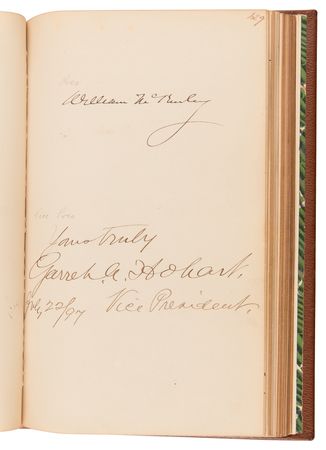 159
Pres
William McKinley
Vice Pres
Yours truly
Garret A. Hobart.
July 22/97 Vice President.